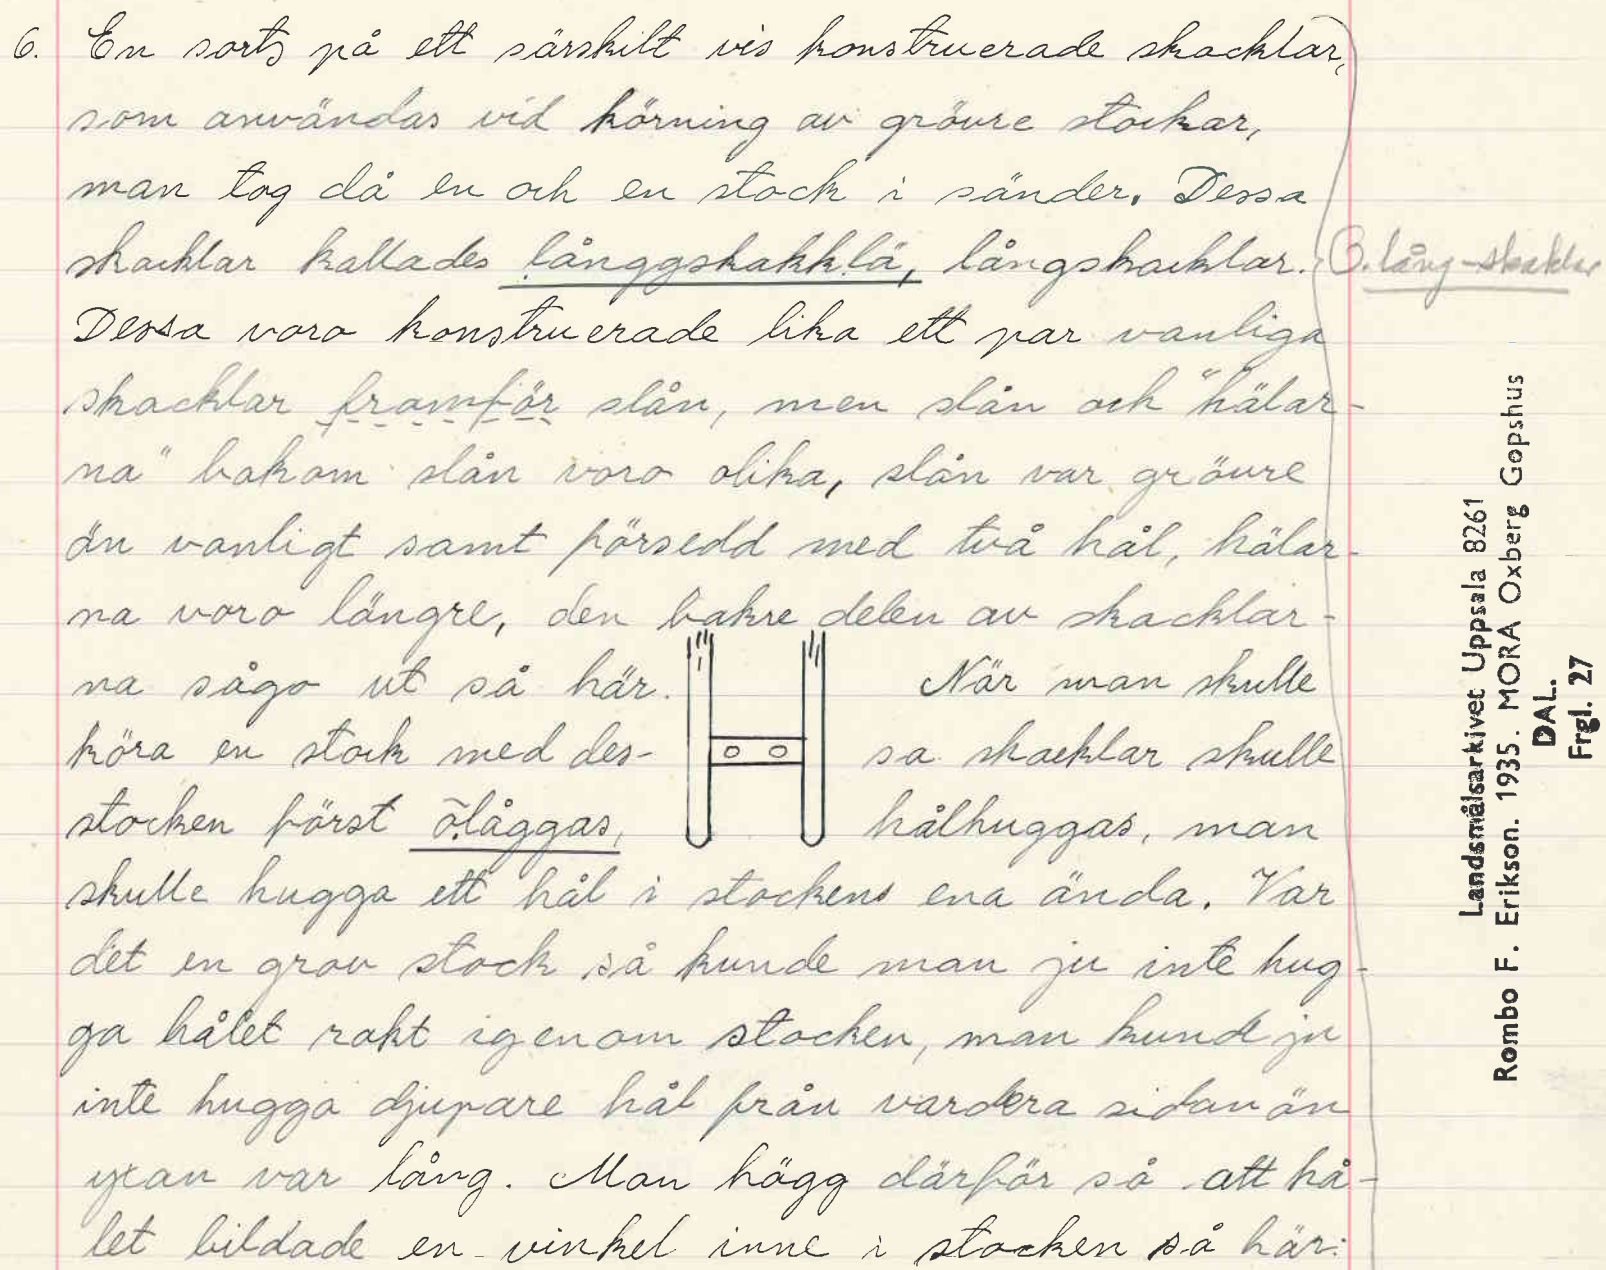 6. En sorts på ett särskilt vis konstruerade skacklar,
som användas vid körning av grövre stockar,
man tog då en och en stock i sänder. Dessa
skacklar kallades långgskakklä, långskacklar.
Dessa voro konstruerade lika ett par vanliga
skacklar framför slån, men slån och "hälar-
na" bakom slån voro olika, slån var grövre
än vanligt samt försedd med två hål, hälar-
na voro längre, den bakre delen av skacklar-
na sågo ut så här. När man skulle
köra en stock med des- sa skacklar skulle
stocken först ölåggas, hålhuggas, man
skulle hugga ett hål i stockens ena ända. Var
det en grov stock så kunde man ju inte hug-
ga hålet rakt igenom stocken, man kund ju
inte hugga djupare hål från vardera sidan än
yxan var lång. Man högg därför så att hå-
let bildade en vinkel inne i stocken så här:
lång-skaklar
Landsmålsarkivet Uppsala 8261
Rombo F. Erikson. 1935. MORA Oxberg Gopshus
DAL.
Frgl. 27